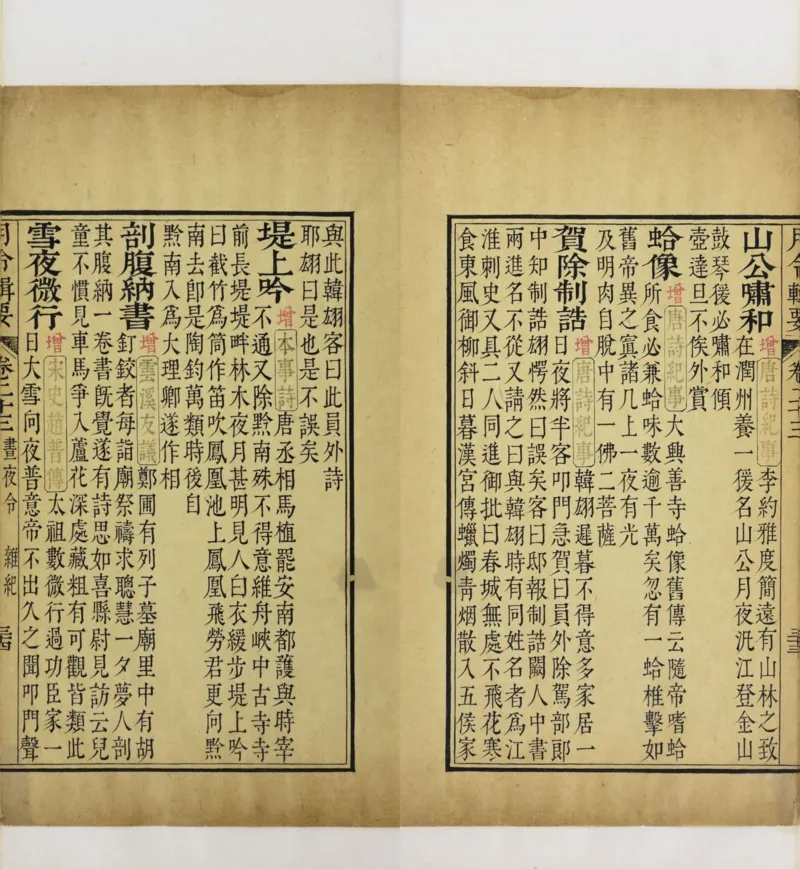 月令輯要 卷二十三
山公嘯和 增 唐詩紀事 李約雅度簡遠有山林之致
在潤州養一猨名山公月夜汎江登金山
鼓琴猨必嘯和傾
壺達旦不俟外賞
蛤像 增 唐詩紀事 大興善寺蛤像舊傳云隨帝嗜蛤
所食必兼蛤味數逾千萬矣忽有一蛤椎擊如
舊帝異之寘諸几上一夜有光
及明肉自脫中有一佛二菩薩
賀除制誥 增 唐詩紀事 韓翃遲暮不得意多家居一
日夜將半客叩門急賀曰員外除駕部郎
中知制誥翃愕然曰誤矣客曰邸報制誥闕人中書
兩進名不從又請之曰與韓翃時有同姓名者爲江
淮刺史又具二人同進御批曰春城無處不飛花寒
食東風御柳斜日暮漢宮傳蠟燭青烟散入五侯家
與此韓翃客曰此員外詩
耶翃曰是也是不誤矣
堤上吟 增 本事詩 唐丞相馬植罷安南都護與時宰
不通又除黔南殊不得意維舟峽中古寺寺
前長堤堤畔林木夜月甚明見人白衣緩步堤上吟
曰截竹爲筒作笛吹鳳凰池上鳳凰飛勞君更向黔
南去卽是陶鈞萬類時後自
黔南入爲大理卿遂作相
剖腹納書 增 雲溪友議 鄭圃有列子墓廟里中有胡
釘鉸者每詣廟祭禱求聰慧一夕夢人剖
其腹納一卷書旣覺遂有詩思如喜縣尉見訪云兒
童不慣見車馬爭入蘆花深處藏粗有可觀皆類此
雪夜微行 增 宋史趙普傳 太祖數微行過功臣家一
日大雪向夜普意帝不出久之聞叩門聲
月令輯要 卷二十三 晝夜令 雜紀 三十四